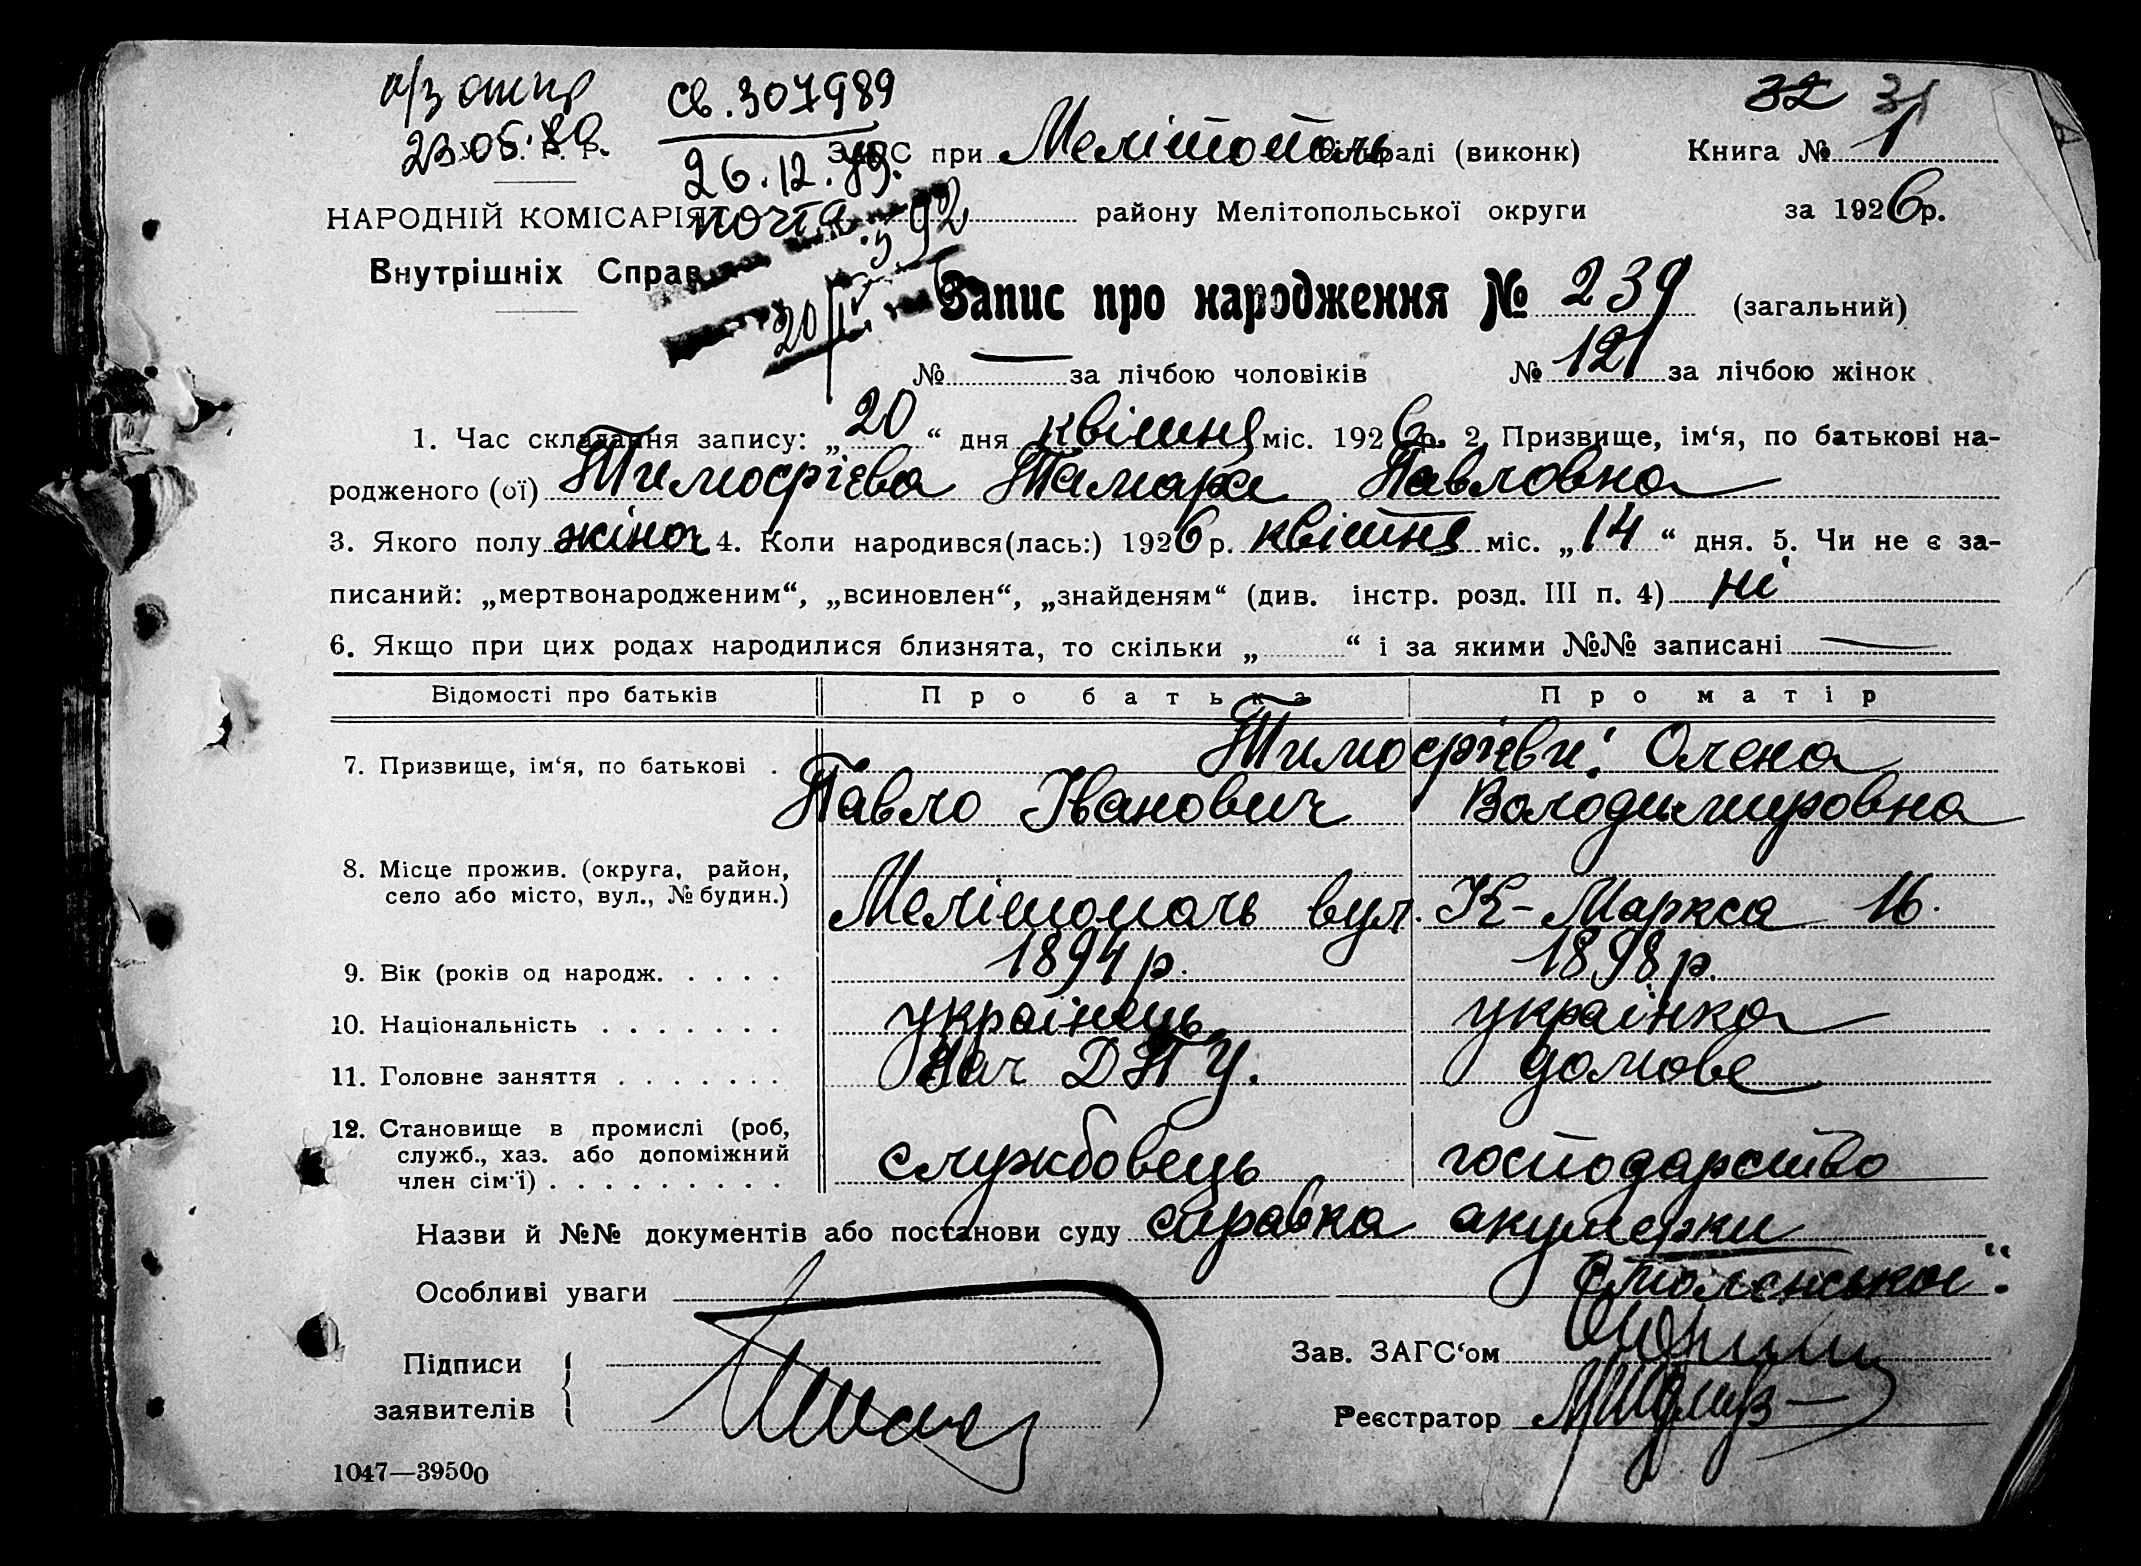 32 31
св. 307989
23.05.80.
26.12.79.
почта
ЗАГС при Мелітополь сільраді (виконк) Книга № 1
НАРОДНІЙ КОМІСАРІЯТ району Мелітопольської округи за 1926р.
Внутрішніх Справ
Запис про народження № 239 (загальний)
№ — за лічбою чоловіків № 121 за лічбою жінок
1. Час складання запису: „20“ дня квітня міс. 1926р. 2. Призвище, ім‘я, по батькові на-
родженого (ої) Тимофієва Тамара Павловна
3. Якого полу жіноч 4. Коли народився(лась:) 1926р. квітня міс. „14“ дня. 5. Чи не є за-
писаний: „мертвонародженим“, „всиновлен“, „знайденям“ (див. інстр. розд. III п. 4) ні
6. Якщо при цих родах народилися близнята, то скільки „ “ і за якими №№ записані —
Відомості про батьків Про батька Про матір
7. Призвище, ім‘я, по батькові . Тимофієви: Олена
Павло Іванович Володимировна
8. Місце прожив. (округа, район,
село або місто, вул., № будин.) Мелітополь вул. К-Маркса 16.
9. Вік (років од народж. . . . . 1894 р. 1898 р.
10. Національність . . . . . . . українець українка
11. Головне заняття . . . . . . . Нач ДПУ. домове
12. Становище в промислі (роб,
служб., хаз. або допоміжний службовець господарство
член сім‘ї) . . . . . . . . .
Назви й №№ документів або постанови суду справка акушерки
Особливі уваги Смоленської.
Підписи Зав. ЗАГС‘ом
заявителів Реєстратор
1047—39500